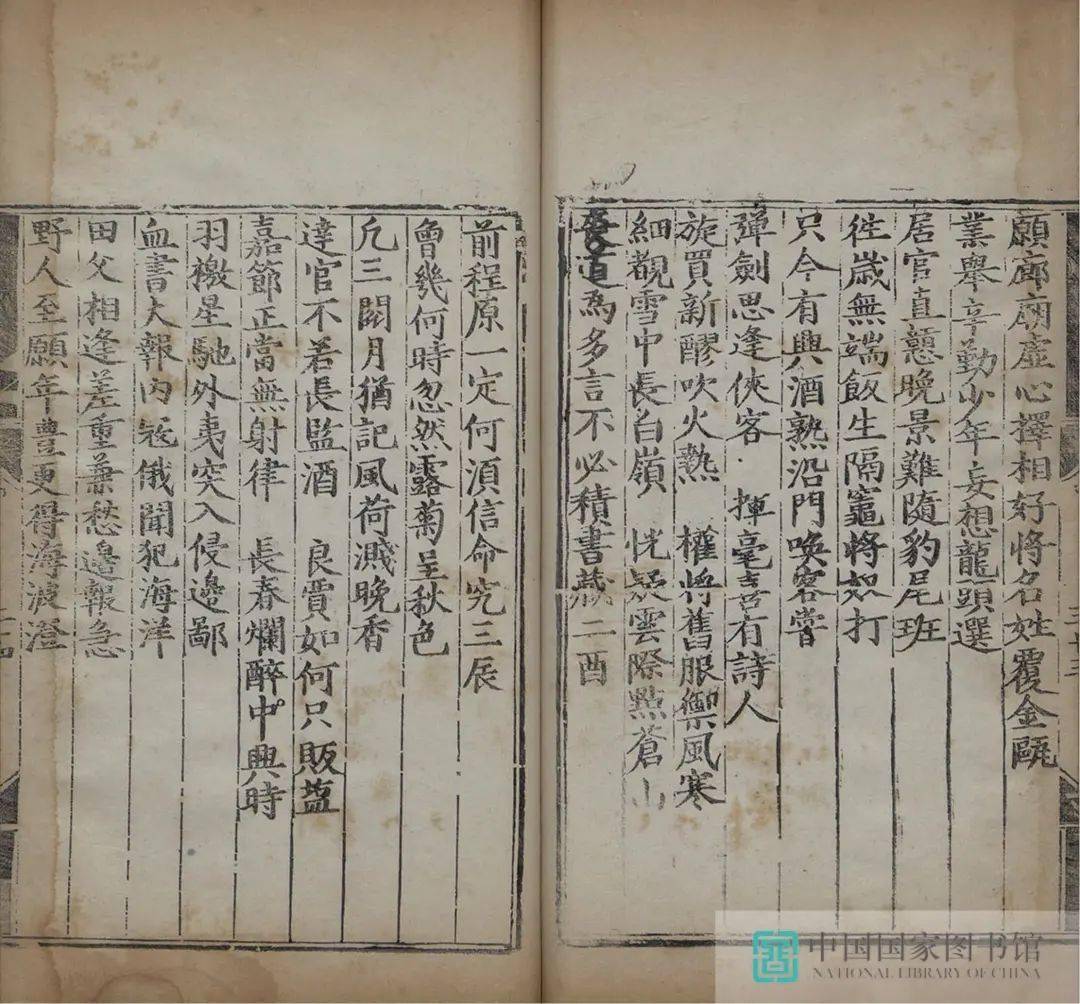 願廊廟虛心擇相好将名姓覆金甌
業舉辛勤少年妄想龍頭選
居官直戇晚景難隨豹尾班
徃歳無端飯生隔竈将如打
只今有興酒熟沿門喚客嘗
彈劍思逢俠客 揮毫喜有詩人
旋買新醪吹火熱 權将舊服禦風寒
細觀雪中長白嶺 恍疑雲際點蒼山
吾道為多言不必積書藏二酉
前程原一定何湏信命究三辰
曾幾何時忽然露菊呈秋色
凢三閱月猶記風荷濺晚香
達官不若長監酒 良賈如何只販塩
嘉節正當無射律 長春爛醉中興時
羽檄星馳外夷突入侵邊鄙
血書大報內冦俄聞犯海洋
田父相逢差重兼愁邊報急
野人至願年豊更得海波澄
中国国家图书馆
NATIONAL LIBRARY OF CHINA